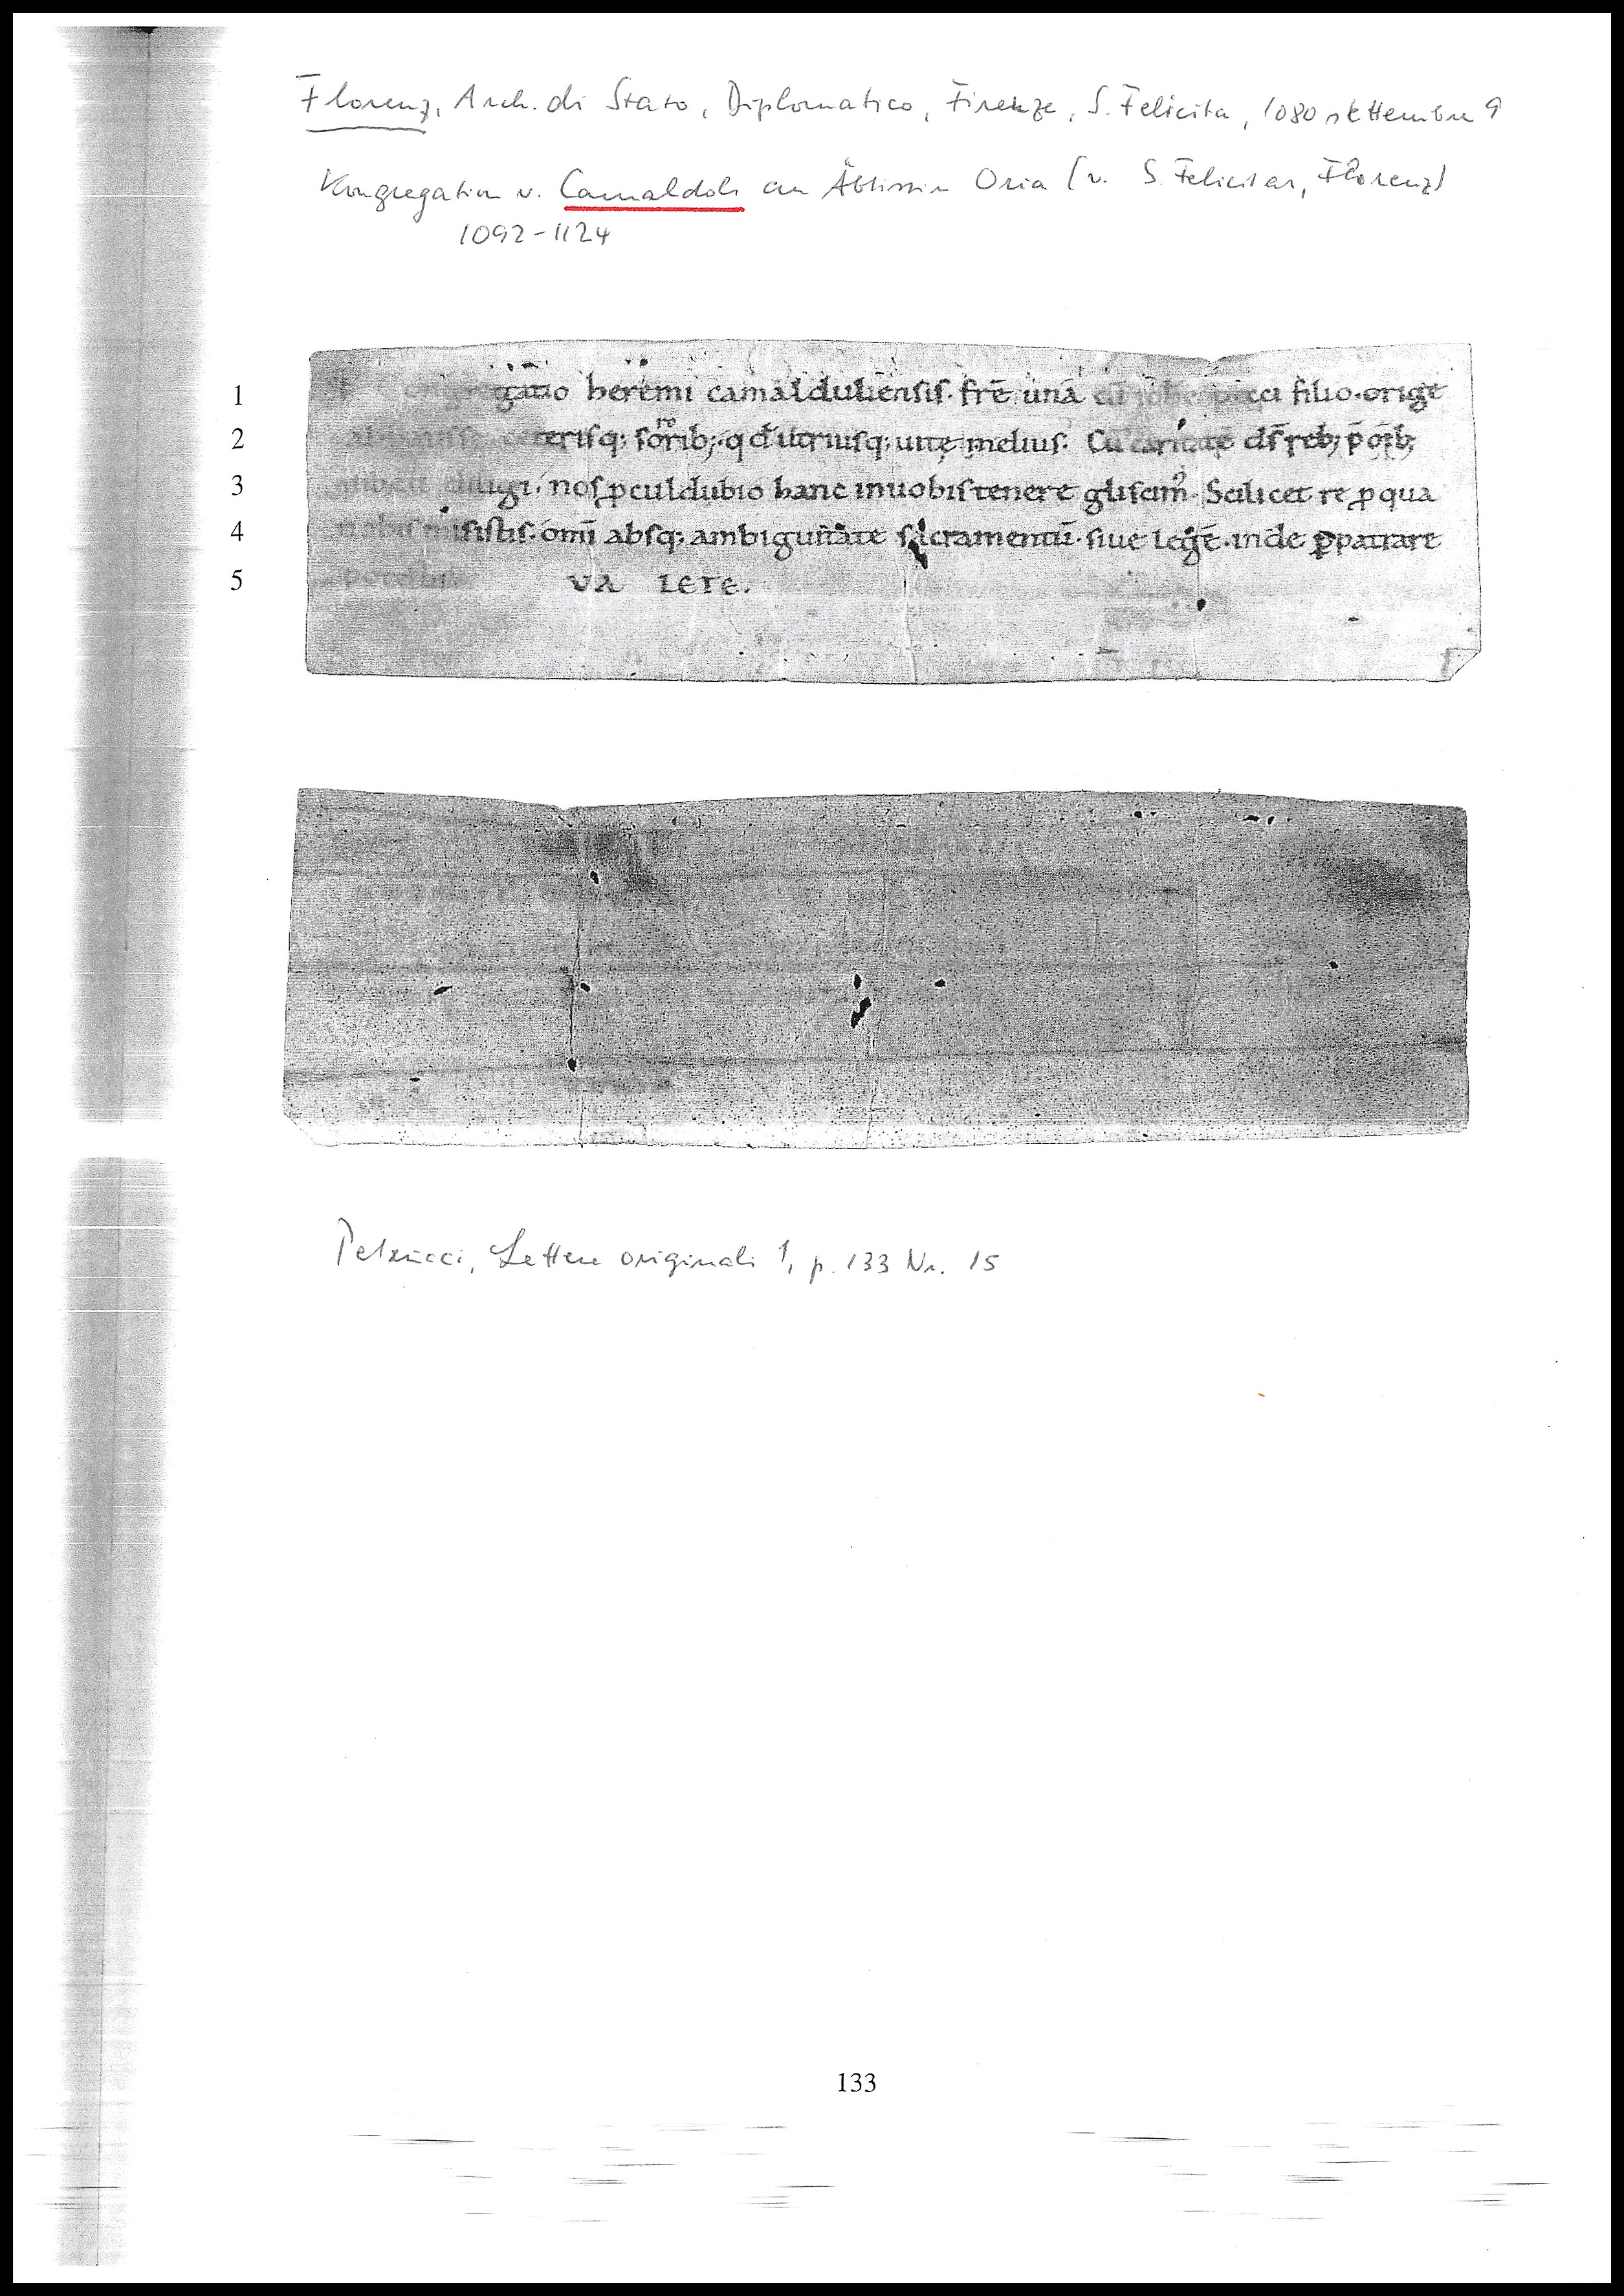 Florenz, Arch. di Stato, Diplomatico, Firenze, S. Felicita, 1080 settembre 9
Kongregation v. Camaldoli an Äbtissin Oria (v. S. Felicitas, Florenz)
1092-1124
1 gatio heremi camalduliensis. frē una cū filio. orige
2 cęterisq; sorīb; qđ utriusq; uitę melius. Cū caritate ds̄ reb; p̄ oīb;
3 diligi. nos ꝓculdubio hanc inuobis tenere gliscim᷒. Scilicet re ꝓ qua
4 nobis misistis. omī absq; ambiguitate sacramentū. siue legē. inde ꝑpatrare
5 VA LETE.
Petrucci, Lettere originali 1, p. 133 Nr. 15
133